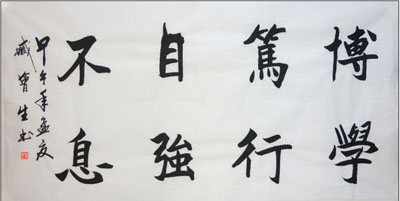 博學
篤行
自強
不息
甲午年孟夏
臧曾生书